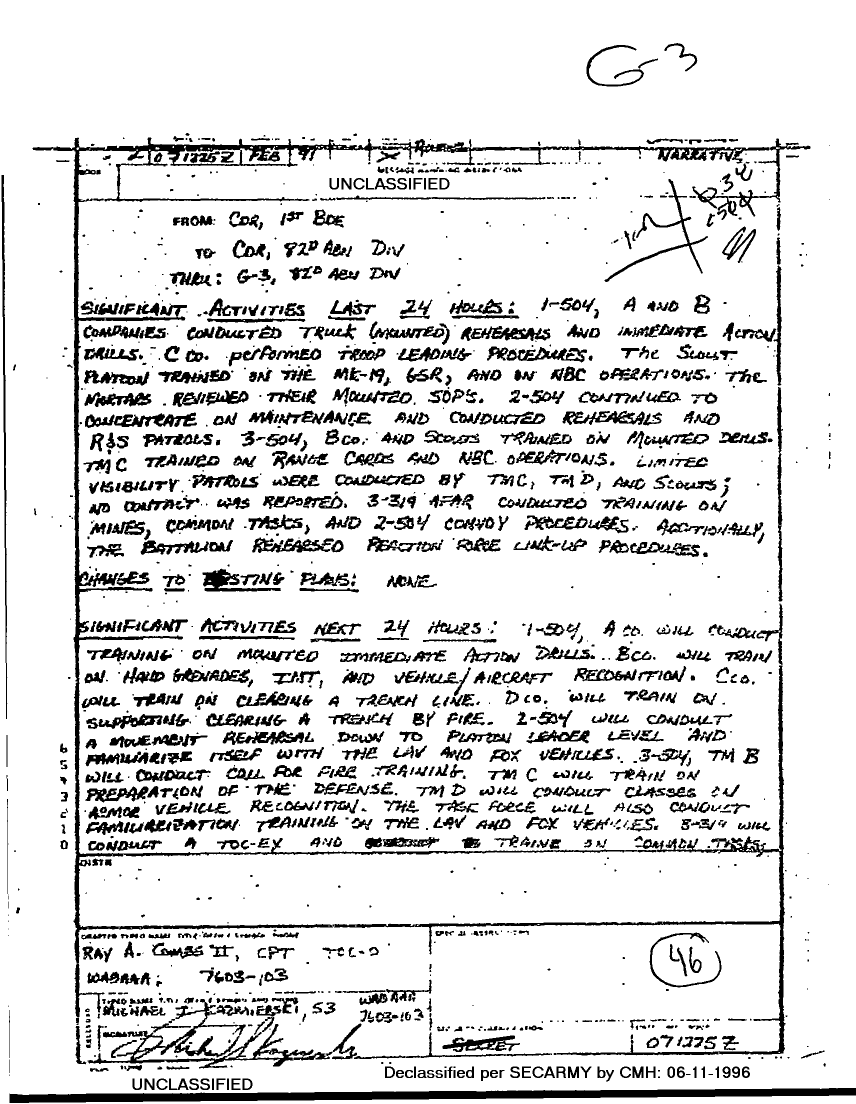 G-3
2 071225Z FEB 91 X Routine NARRATIVE
BOOK MESSAGE HANDLING INSTRUCTIONS
UNCLASSIFIED
FROM: CDR, 1ST BDE
TO CDR, 82D ABN DIV
THRU: G-3, 82D ABN DIV
1504
SIGNIFICANT ACTIVITIES LAST 24 HOURS: 1-504, A AND B
COMPANIES CONDUCTED TRUCK (MOUNTED) REHEARSALS AND IMMEDIATE ACTION
DRILLS. C CO. PERFORMED TROOP LEADING PROCEDURES. THE SCOUT
PLATOON TRAINED ON THE MK-19, GSR, AND ON NBC OPERATIONS. THE
MORTARS REVIEWED THEIR MOUNTED SOP'S. 2-504 CONTINUED TO
CONCENTRATE ON MAINTENANCE AND CONDUCTED REHEARSALS AND
R&S PATROLS. 3-504, B CO. AND SCOUTS TRAINED ON MOUNTED DRILLS.
TM C TRAINED ON RANGE CARDS AND NBC OPERATIONS. LIMITED
VISIBILITY PATROLS WERE CONDUCTED BY TM C, TM D, AND SCOUTS;
NO CONTACT WAS REPORTED. 3-319 AFAR CONDUCTED TRAINING ON
MINES, COMMON TASKS, AND 2-504 CONVOY PROCEDURES. ADDITIONALLY,
THE BATTALION REHEARSED REACTION FORCE LINK-UP PROCEDURES.
CHANGES TO EXISTING PLANS: NONE
SIGNIFICANT ACTIVITIES NEXT 24 HOURS: 1-504, A CO. WILL CONDUCT
TRAINING ON MOUNTED IMMEDIATE ACTION DRILLS. B CO. WILL TRAIN
ON HAND GRENADES, IMT, AND VEHICLE/AIRCRAFT RECOGNITION. C CO.
WILL TRAIN ON CLEARING A TRENCH LINE. D CO. WILL TRAIN ON
SUPPORTING CLEARING A TRENCH BY FIRE. 2-504 WILL CONDUCT
A MOVEMENT REHEARSAL DOWN TO PLATOON LEADER LEVEL AND
FAMILIARIZE ITSELF WITH THE LAV AND FOX VEHICLES. 3-504, TM B
WILL CONDUCT CALL FOR FIRE TRAINING. TM C WILL TRAIN ON
PREPARATION OF THE DEFENSE. TM D WILL CONDUCT CLASSES ON
ARMOR VEHICLE RECOGNITION. THE TASK FORCE WILL ALSO CONDUCT
FAMILIARIZATION TRAINING ON THE LAV AND FOX VEHICLES. 3-319 WILL
CONDUCT A TOC-EX AND TRAINE ON COMMON TASKS;
6
5
4
3
2
1
0
DISTR
DRAFTER TYPED NAME, TITLE, OFFICE SYMBOL, PHONE
SPECIAL INSTRUCTIONS
RAY A. COMBS II, CPT TOC-O
WABAAA; 7603-103
46
TYPED NAME, TITLE, OFFICE SYMBOL AND PHONE
MICHAEL J. KAZMIERSKI, S3 WABAAA
7603-103
SIGNATURE
SECURITY CLASSIFICATION
SECRET
DATE TIME GROUP
071225Z
UNCLASSIFIED
Declassified per SECARMY by CMH: 06-11-1996